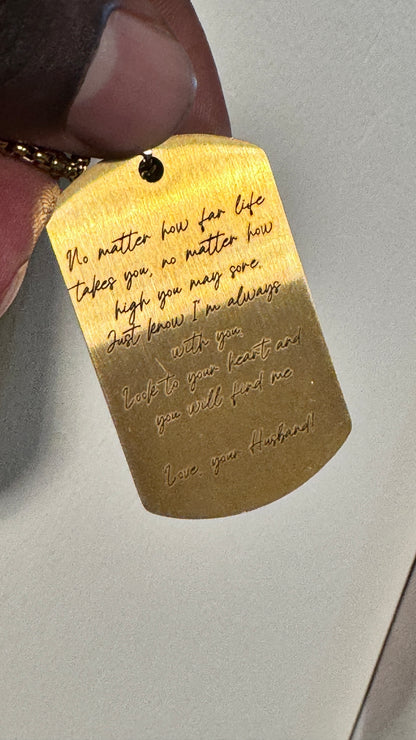 No matter how far life
takes you, no matter how
high you may sore.
Just know I'm always
with you.
Look to your heart and
you will find me
Love, your Husband!